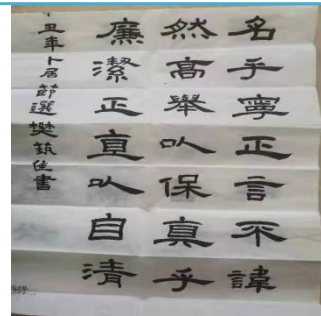 名乎寧正言不諱
然高舉以保真乎
廉潔正直以自清
丑年卜居節選樊筑佳書